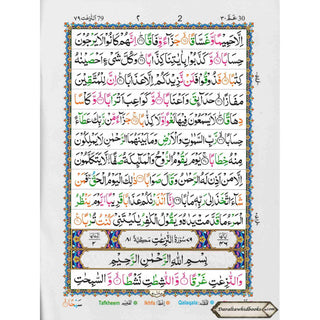 النّٰزعٰت ٧٩ ٢ 2 عمّ ٣٠ 30
اِلَّا حَمِيْمًا وَّغَسَّاقًا ۙ جَزَآءً وِّفَاقًا ؕ اِنَّهُمْ كَانُوْا لَا يَرْجُوْنَ
حِسَابًا ۙ وَّكَذَّبُوْا بِاٰيٰتِنَا كِذَّابًا ؕ وَكُلَّ شَيْءٍ اَحْصَيْنٰهُ
كِتٰبًا ۙ فَذُوْقُوْا فَلَنْ نَّزِيْدَكُمْ اِلَّا عَذَابًا ۧ اِنَّ لِلْمُتَّقِيْنَ
مَفَازًا ۙ حَدَآئِقَ وَاَعْنَابًا ۙ وَّكَوَاعِبَ اَتْرَابًا ۙ وَّكَاْسًا
دِهَاقًا ؕ لَا يَسْمَعُوْنَ فِيْهَا لَغْوًا وَّلَا كِذّٰبًا ۚ جَزَآءً مِّنْ رَّبِّكَ عَطَآءً
حِسَابًا ۙ رَّبِّ السَّمٰوٰتِ وَالْاَرْضِ وَمَا بَيْنَهُمَا الرَّحْمٰنِ لَا يَمْلِكُوْنَ
مِنْهُ خِطَابًا ۚ يَوْمَ يَقُوْمُ الرُّوْحُ وَالْمَلٰٓئِكَةُ صَفًّا ۙ لَّا يَتَكَلَّمُوْنَ
اِلَّا مَنْ اَذِنَ لَهُ الرَّحْمٰنُ وَقَالَ صَوَابًا ۞ ذٰلِكَ الْيَوْمُ الْحَقُّ ۚ فَمَنْ
شَآءَ اتَّخَذَ اِلٰى رَبِّهٖ مَاٰبًا ۞ اِنَّآ اَنْذَرْنٰكُمْ عَذَابًا قَرِيْبًا ۖ يَّوْمَ يَنْظُرُ
الْمَرْءُ مَا قَدَّمَتْ يَدٰهُ وَيَقُوْلُ الْكٰفِرُ يٰلَيْتَنِيْ كُنْتُ تُرٰبًا ۧ
سُوْرَةُ النّٰزِعٰتِ مَكِّيَّةٌ
بِسْمِ اللّٰهِ الرَّحْمٰنِ الرَّحِيْمِ
وَالنّٰزِعٰتِ غَرْقًا ۙ وَّالنّٰشِطٰتِ نَشْطًا ۙ وَّالسّٰبِحٰتِ
Tafkheem Ikhfa Qalqala
Darultawhidbooks.com